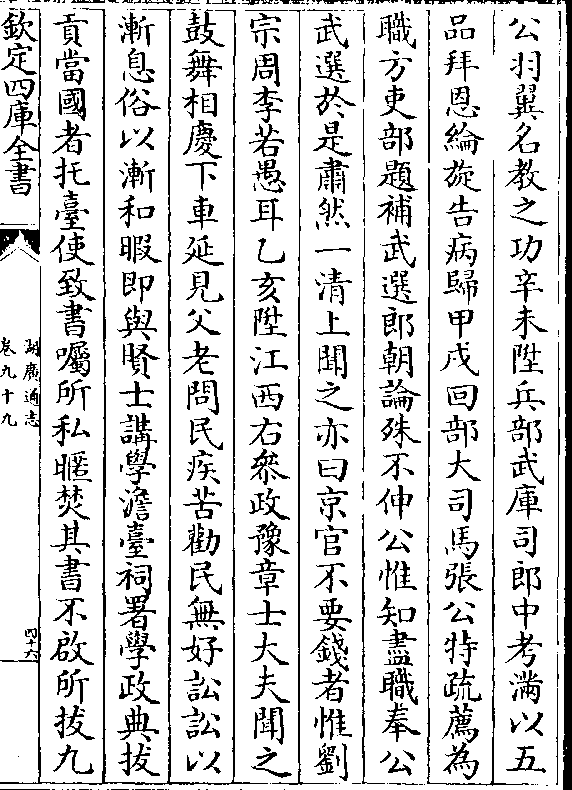 公羽翼名教之功辛未陞兵部武庫司郎中考滿以五
品拜恩綸旋告病歸甲戌回部大司馬張公特疏薦為
職方吏部題補武選郎朝論殊不伸公惟知盡職奉公
武選於是肅然一清上聞之亦曰京官不要錢者惟劉
宗周李若愚耳乙亥陞江西右叅政豫章士大夫聞之
鼓舞相慶下車延見父老問民疾苦勸民無好訟訟以
漸息俗以漸和暇即與賢士講學澹臺祠署學政典拔
貢當國者托臺使致書囑所私暱焚其書不啟所拔九
欽定四庫全書
湖廣通志
卷九十九
四十六